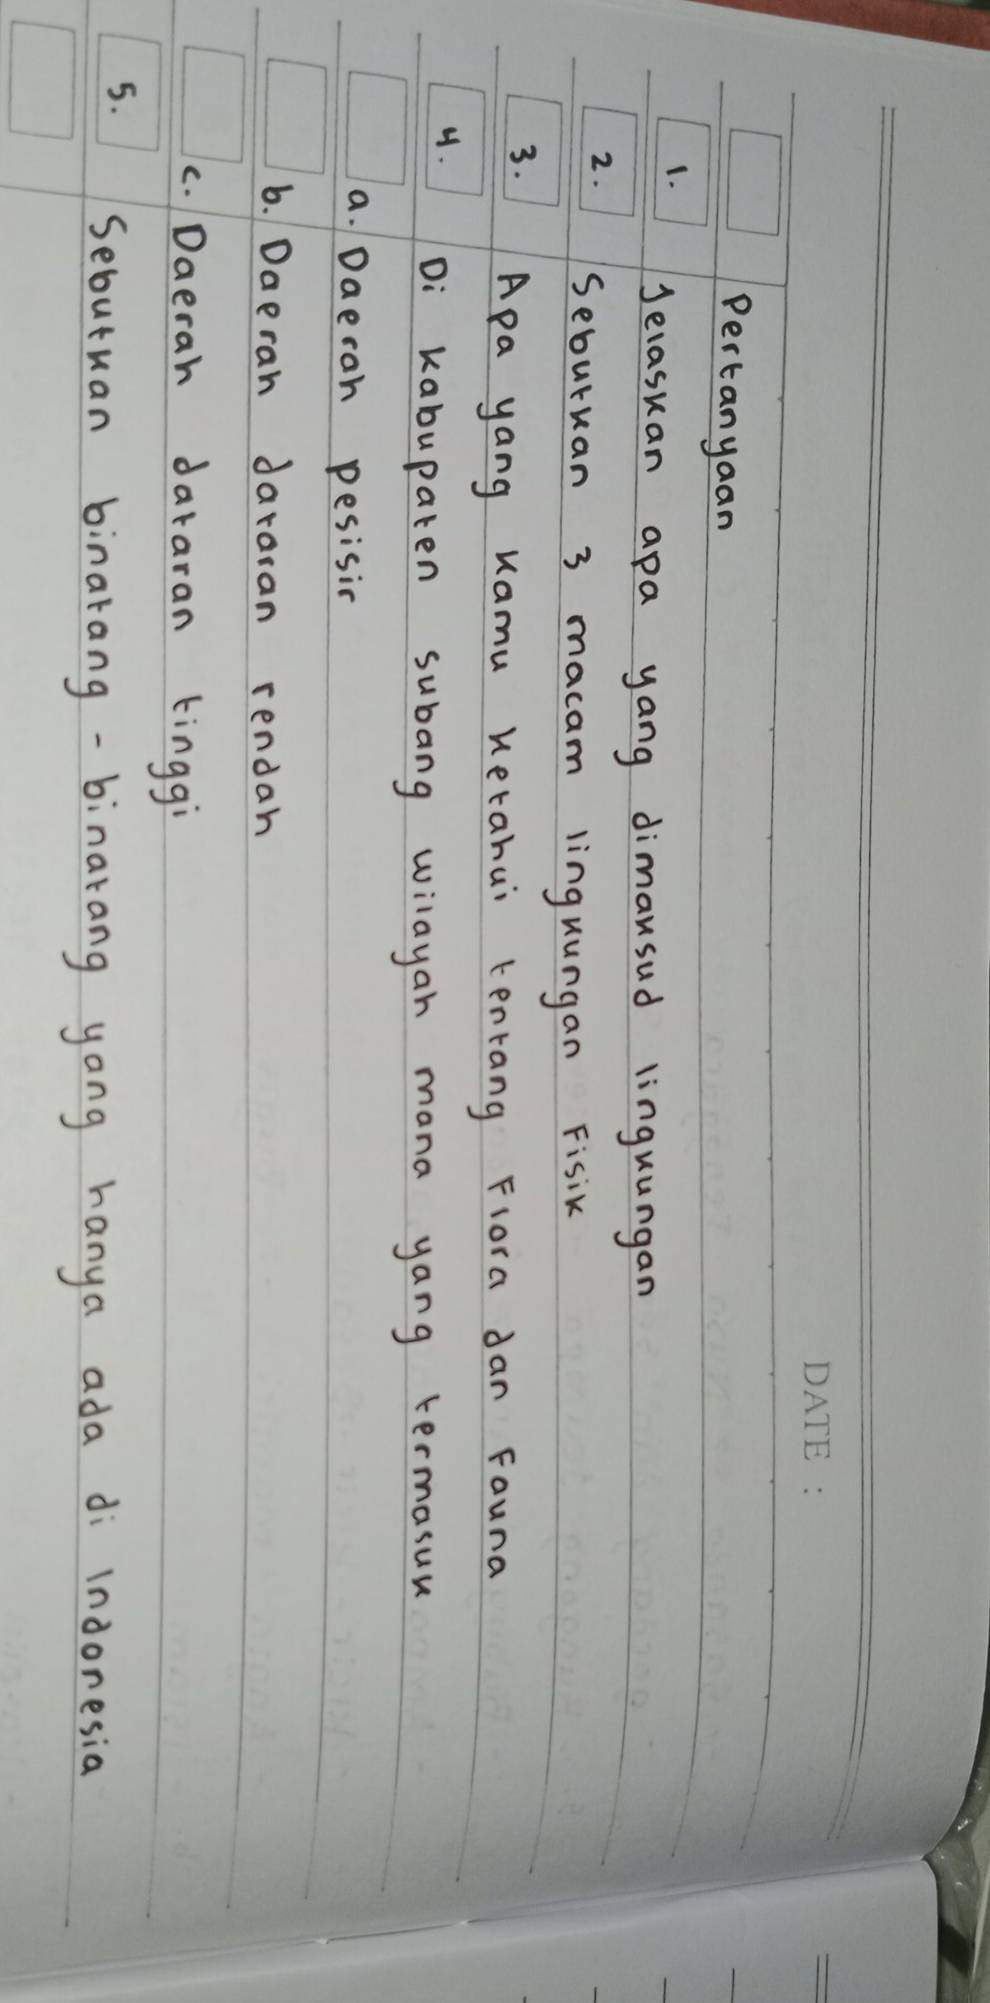 DATE :
Pertanyaan
1. Jelaskan apa yang dimaksud lingkungan
2. Sebutkan 3 macam lingkungan Fisik
3. Apa yang kamu ketahui tentang Flora dan Fauna
4. Di kabupaten subang wilayah mana yang termasuk
a. Daerah pesisir
b. Daerah dataran rendah
c. Daerah dataran tinggi
5. Sebutkan binatang - binatang yang hanya ada di Indonesia